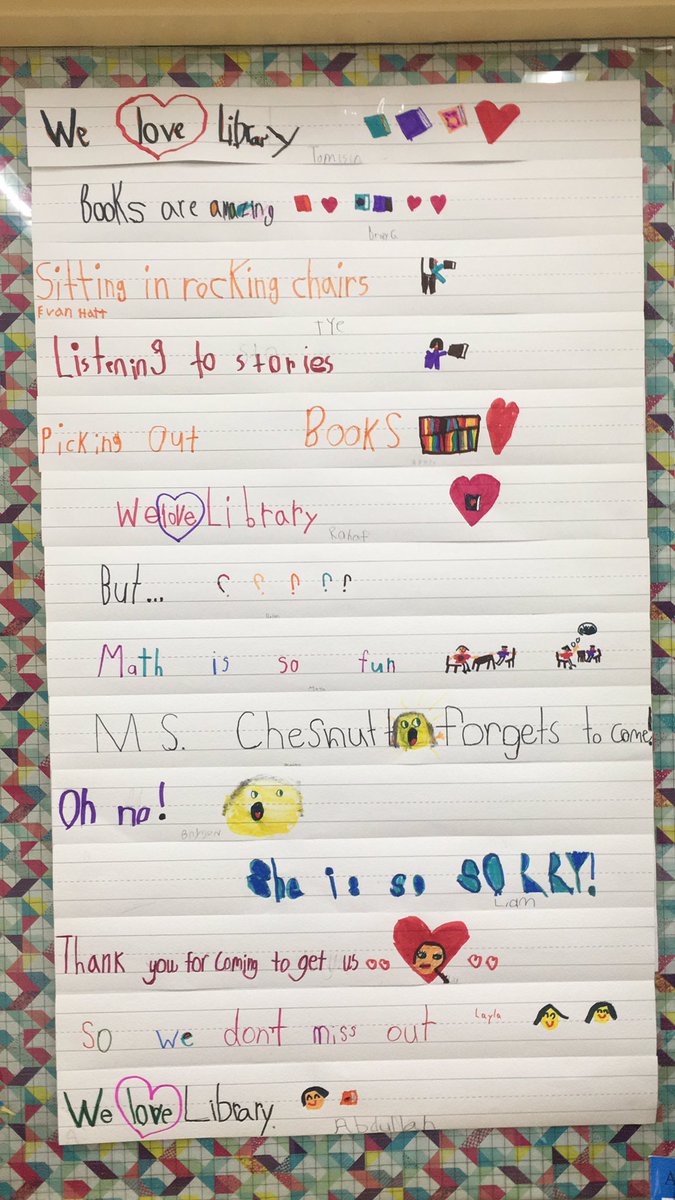 We love Library
Tomisin
Books are amazing
Sitting in rocking chairs
Evan Hatt
Tye
Listening to stories
Picking Out Books
We love Library
Rahaf
But... ? ? ? ? ?
Math is so fun
Ms. Chesnutt forgets to come!
Oh no!
She is so SORRY!
Liam
Thank you for coming to get us
So we don't miss out
Layla
We love Library.
Abdullah